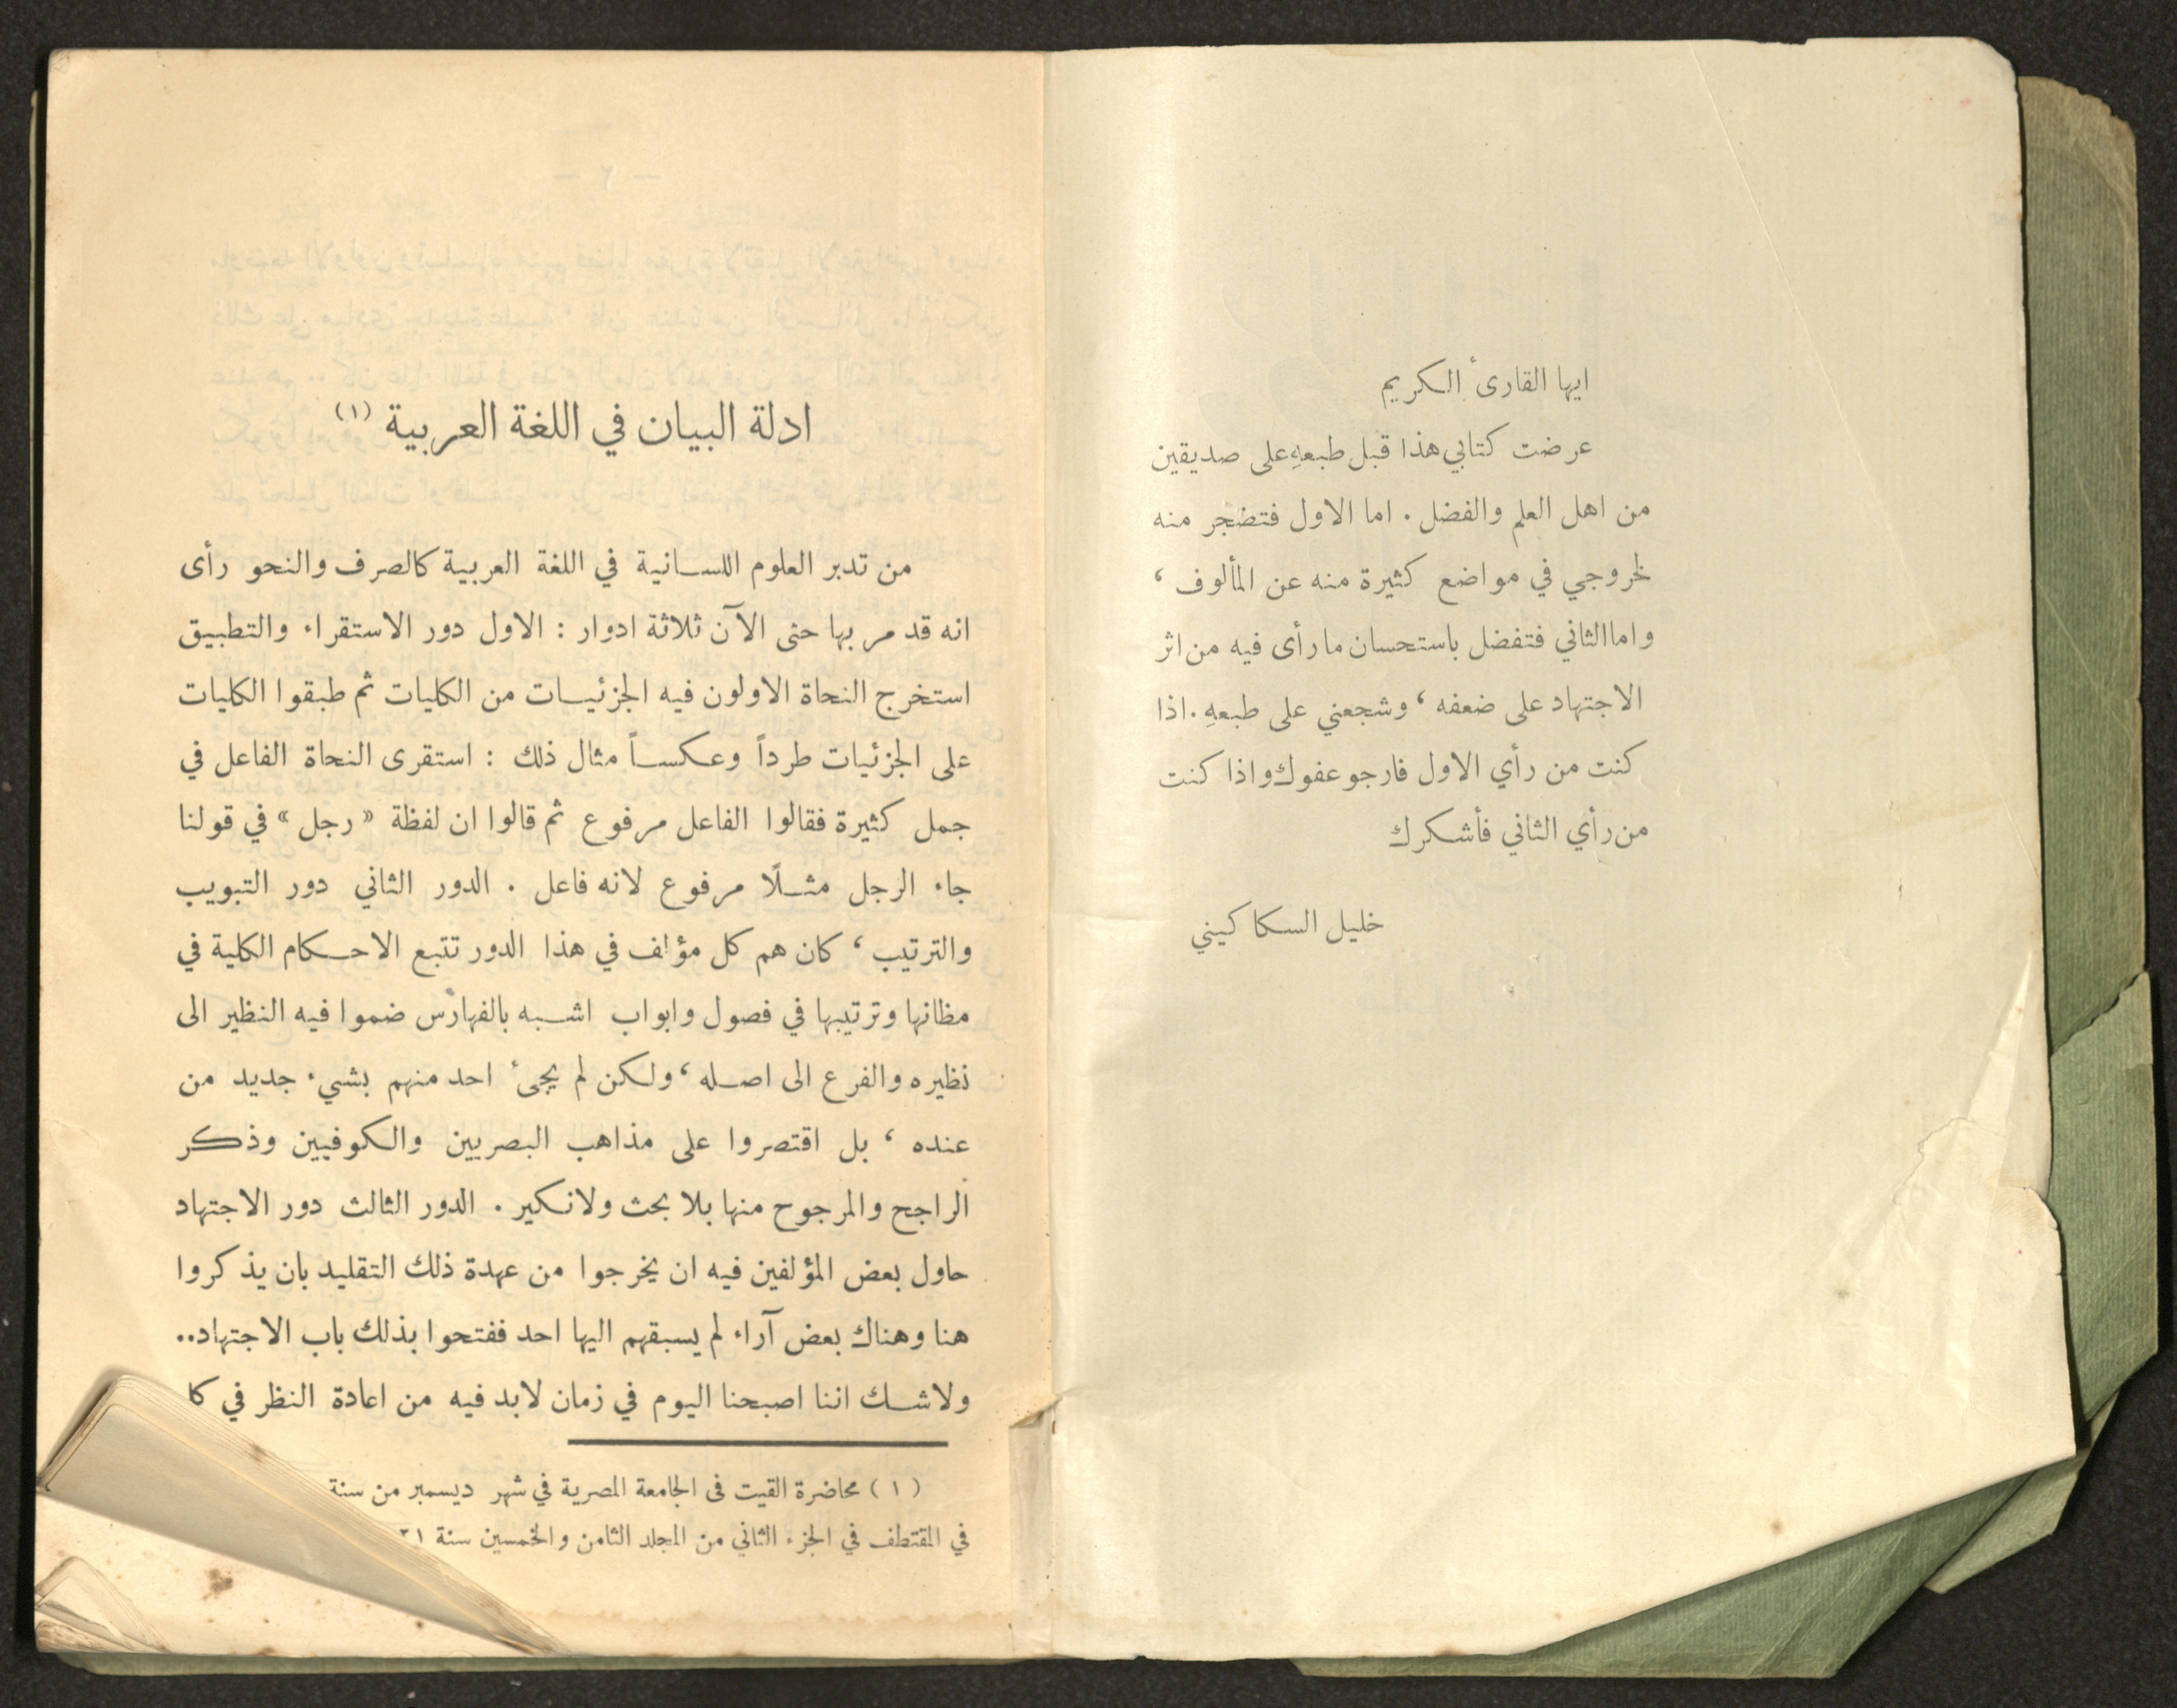 ايها القارئ الكريم
عرضت كتابي هذا قبل طبعهِ على صديقين
من اهل العلم والفضل . اما الاول فتضجر منه
لخروجي في مواضع كثيرة منه عن المألوف ،
واما الثاني فتفضل باستحسان ما رأى فيه من اثر
الاجتهاد على ضعفه ، وشجعني على طبعهِ . اذا
كنت من رأي الاول فارجو عفوك واذا كنت
من رأي الثاني فأشكرك
خليل السكاكيني
ادلة البيان في اللغة العربية (١)
من تدبر العلوم اللسانية في اللغة العربية كالصرف والنحو رأى
انه قد مر بها حتى الآن ثلاثة ادوار : الاول دور الاستقراء والتطبيق
استخرج النحاة الاولون فيه الجزئيات من الكليات ثم طبقوا الكليات
على الجزئيات طرداً وعكساً مثال ذلك : استقرى النحاة الفاعل في
جمل كثيرة فقالوا الفاعل مرفوع ثم قالوا ان لفظة « رجل » في قولنا
جاء الرجل مثلًا مرفوع لانه فاعل . الدور الثاني دور التبويب
والترتيب ، كان هم كل مؤلف في هذا الدور تتبع الاحكام الكلية في
مظانها وترتيبها في فصول وابواب اشبه بالفهارس ضموا فيه النظير الى
نظيره والفرع الى اصله ، ولكن لم يجئ احد منهم بشيء جديد من
عنده ، بل اقتصروا على مذاهب البصريين والكوفيين وذكر
الراجح والمرجوح منها بلا بحث ولا نكير . الدور الثالث دور الاجتهاد
حاول بعض المؤلفين فيه ان يخرجوا من عهدة ذلك التقليد بان يذكروا
هنا وهناك بعض آراء لم يسبقهم اليها احد ففتحوا بذلك باب الاجتهاد..
ولا شك اننا اصبحنا اليوم في زمان لا بد فيه من اعادة النظر في
(١) محاضرة القيت فى الجامعة المصرية في شهر ديسمبر من سنة
في المقتطف في الجزء الثاني من المجلد الثامن والخمسين سنة